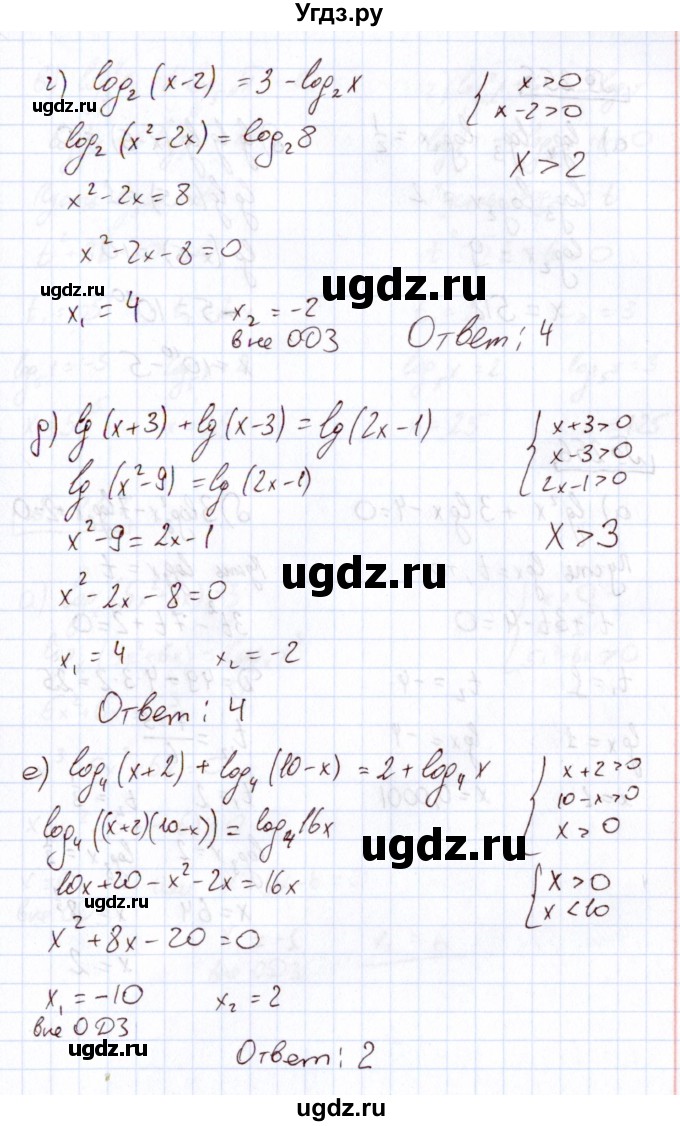 Угдз.ру
г) log₂(x-2) = 3 - log₂x
{ x>0
x-2>0
ugdz.ru
log₂(x²-2x) = log₂8
x>2
x²-2x=8
x²-2x-8=0
ugdz.ru
ugdz.ru
x₁ = 4
x₂ = -2
вне ОДЗ
Ответ: 4
д) lg(x+3) + lg(x-3) = lg(2x-1)
{ x+3>0
x-3>0
2x-1>0
lg(x²-9) = lg(2x-1)
x²-9=2x-1
x>3
ugdz.ru
x²-2x-8=0
x₁ = 4
x₂ = -2
Ответ: 4
е) log₄(x+2) + log₄(10-x) = 2 + log₄x
{ x+2>0
10-x>0
x>0
log₄((x+2)(10-x)) = log₄16x
ugdz.ru
10x+20-x²-2x=16x
{ x>0
x<10
ugdz.ru
x²+8x-20=0
x₁ = -10
x₂ = 2
вне ОДЗ
ugdz.ru
Ответ: 2
ugdz.ru